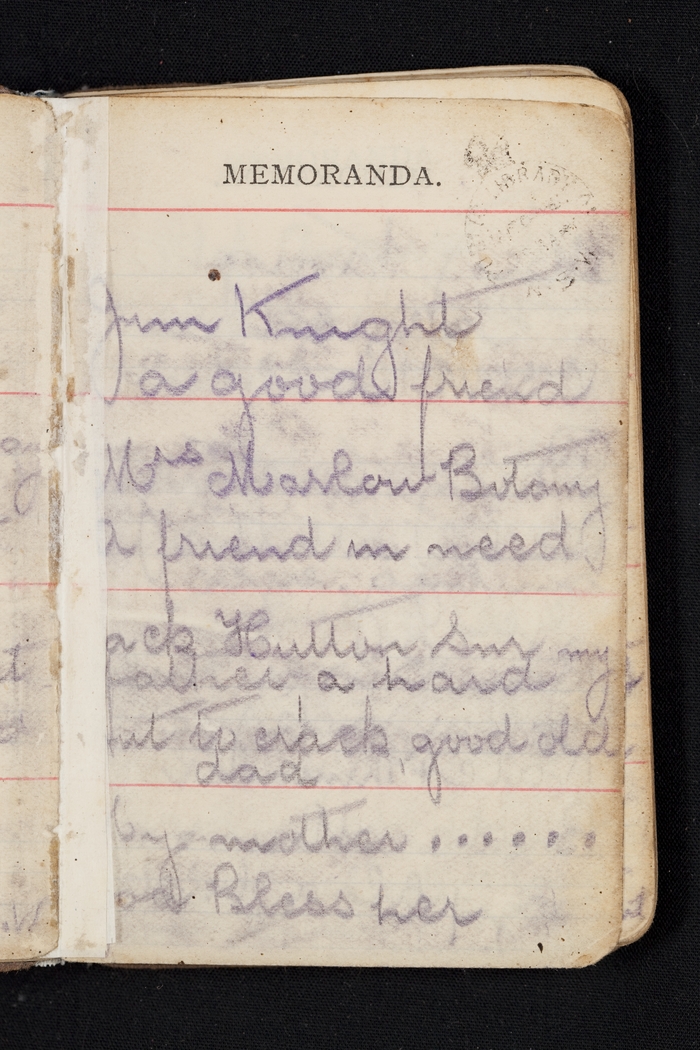 MEMORANDA.
Jim Knight
a good friend
Mrs Marlow Botany
A friend in need
ack Hutton Snr my
father a hard
nut to crack good old
dad
My mother ......
od Bless her